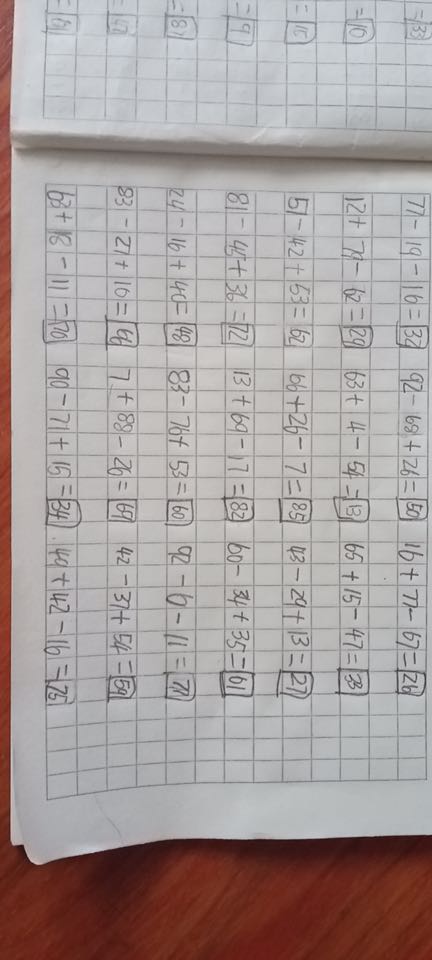 = 33
= 10
= 15
= 9
= 81
= 47
77 - 19 - 16 = 32 92 - 68 + 26 = 50 16 + 77 - 67 = 26
12 + 79 - 62 = 29 63 + 4 - 54 = 13 65 + 15 - 47 = 33
51 - 42 + 53 = 62 66 + 26 - 7 = 85 43 - 29 + 13 = 27
81 - 45 + 36 = 72 13 + 69 - 17 = 82 60 - 34 + 35 = 61
24 - 16 + 40 = 48 83 - 76 + 53 = 60 92 - - 11 = 71
83 - 27 + 16 = 7 + 88 - 26 = 69 42 - 37 + 54 = 59
63 + 18 - 11 = 70 90 - 71 + 15 = 34 49 + 42 - 16 = 75